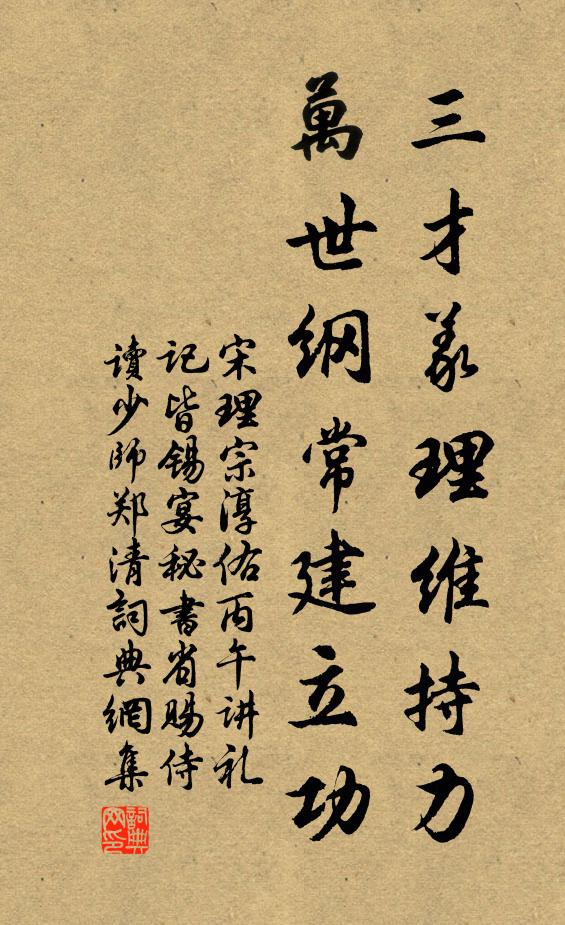 三才義理維持力
萬世纲常建立功
宋理宗淳佑丙午讲礼
记皆锡宴秘書省賜侍
讀少师郑清詞典網集
詞典网印